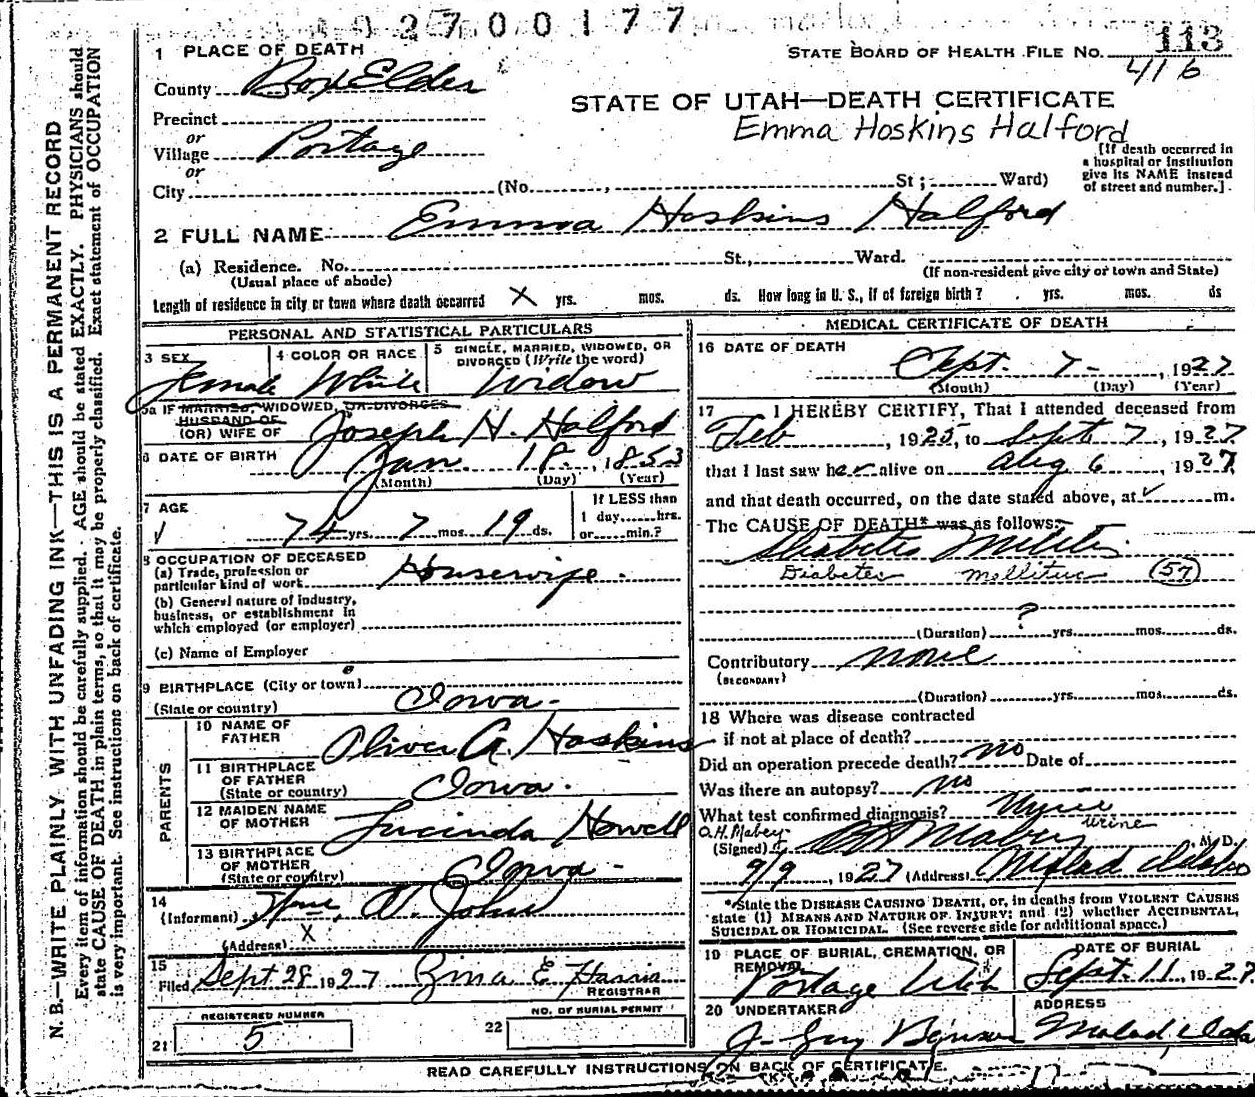 2700177
1 PLACE OF DEATH
STATE BOARD OF HEALTH FILE NO. 113
416
County Box Elder
STATE OF UTAH—DEATH CERTIFICATE
Emma Hoskins Halford
Precinct
or
Village Portage
or
City (No. , St; Ward)
[If death occurred in
a hospital or institution
give its NAME instead
of street and number.]
2 FULL NAME Emma Hoskins Halford
(a) Residence. No. St., Ward.
(Usual place of abode) (If non-resident give city or town and State)
Length of residence in city or town where death occurred X yrs. mos. ds. How long in U. S., if of foreign birth? yrs. mos. ds
PERSONAL AND STATISTICAL PARTICULARS
3 SEX Female
4 COLOR OR RACE White
5 SINGLE, MARRIED, WIDOWED, OR
DIVORCED (Write the word)
Widow
5a IF MARRIED, WIDOWED, OR DIVORCED
HUSBAND OF
(OR) WIFE OF Joseph H. Halford
6 DATE OF BIRTH Jan. 18, 1853
(Month) (Day) (Year)
7 AGE
74 yrs. 7 mos. 19 ds.
If LESS than
1 day......hrs.
or......min.?
8 OCCUPATION OF DECEASED
(a) Trade, profession or
particular kind of work Housewife.
(b) General nature of industry,
business, or establishment in
which employed (or employer)
(c) Name of Employer
9 BIRTHPLACE (City or town)
(State or country) Iowa.
PARENTS
10 NAME OF
FATHER Oliver A. Hoskins
11 BIRTHPLACE
OF FATHER
(State or country) Iowa.
12 MAIDEN NAME
OF MOTHER Lucinda Howell
13 BIRTHPLACE
OF MOTHER
(State or country) Iowa
14
(Informant) Wm. W. John
X
(Address)
15
Filed Sept 28 1927 Zina E Harris
REGISTRAR
REGISTERED NUMBER
21 5
NO. OF BURIAL PERMIT
22
MEDICAL CERTIFICATE OF DEATH
16 DATE OF DEATH
Sept. 7 - , 1927
(Month) (Day) (Year)
17 I HEREBY CERTIFY, That I attended deceased from
Feb , 1925, to Sept 7, 1927
that I last saw her alive on Aug 6 , 1927,
and that death occurred, on the date stated above, at m.
The CAUSE OF DEATH* was as follows:
Diabetes Mellitus
Diabetes mellitus (57)
?
(Duration) yrs. mos. ds.
Contributory none
(SECONDARY)
(Duration) yrs. mos. ds.
18 Where was disease contracted
if not at place of death?
Did an operation precede death? no Date of
Was there an autopsy? no
What test confirmed diagnosis? Urine
urine
O.H. Mabey
(Signed) O H Mabey M.D.
9/9 , 1927 (Address) Malad Idaho
*State the DISEASE CAUSING DEATH, or, in deaths from VIOLENT CAUSES
state (1) MEANS AND NATURE OF INJURY; and (2) whether ACCIDENTAL,
SUICIDAL OR HOMICIDAL. (See reverse side for additional space.)
19 PLACE OF BURIAL, CREMATION, OR
REMOVAL
Portage Utah
DATE OF BURIAL
Sept. 11, 1927
20 UNDERTAKER
J. Guy Benson
ADDRESS
Malad, Ida
READ CAREFULLY INSTRUCTIONS ON BACK OF CERTIFICATE.
N. B.—WRITE PLAINLY, WITH UNFADING INK—THIS IS A PERMANENT RECORD
Every item of information should be carefully supplied. AGE should be stated EXACTLY. PHYSICIANS should
state CAUSE OF DEATH in plain terms, so that it may be properly classified. Exact statement of OCCUPATION
is very important. See instructions on back of certificate.